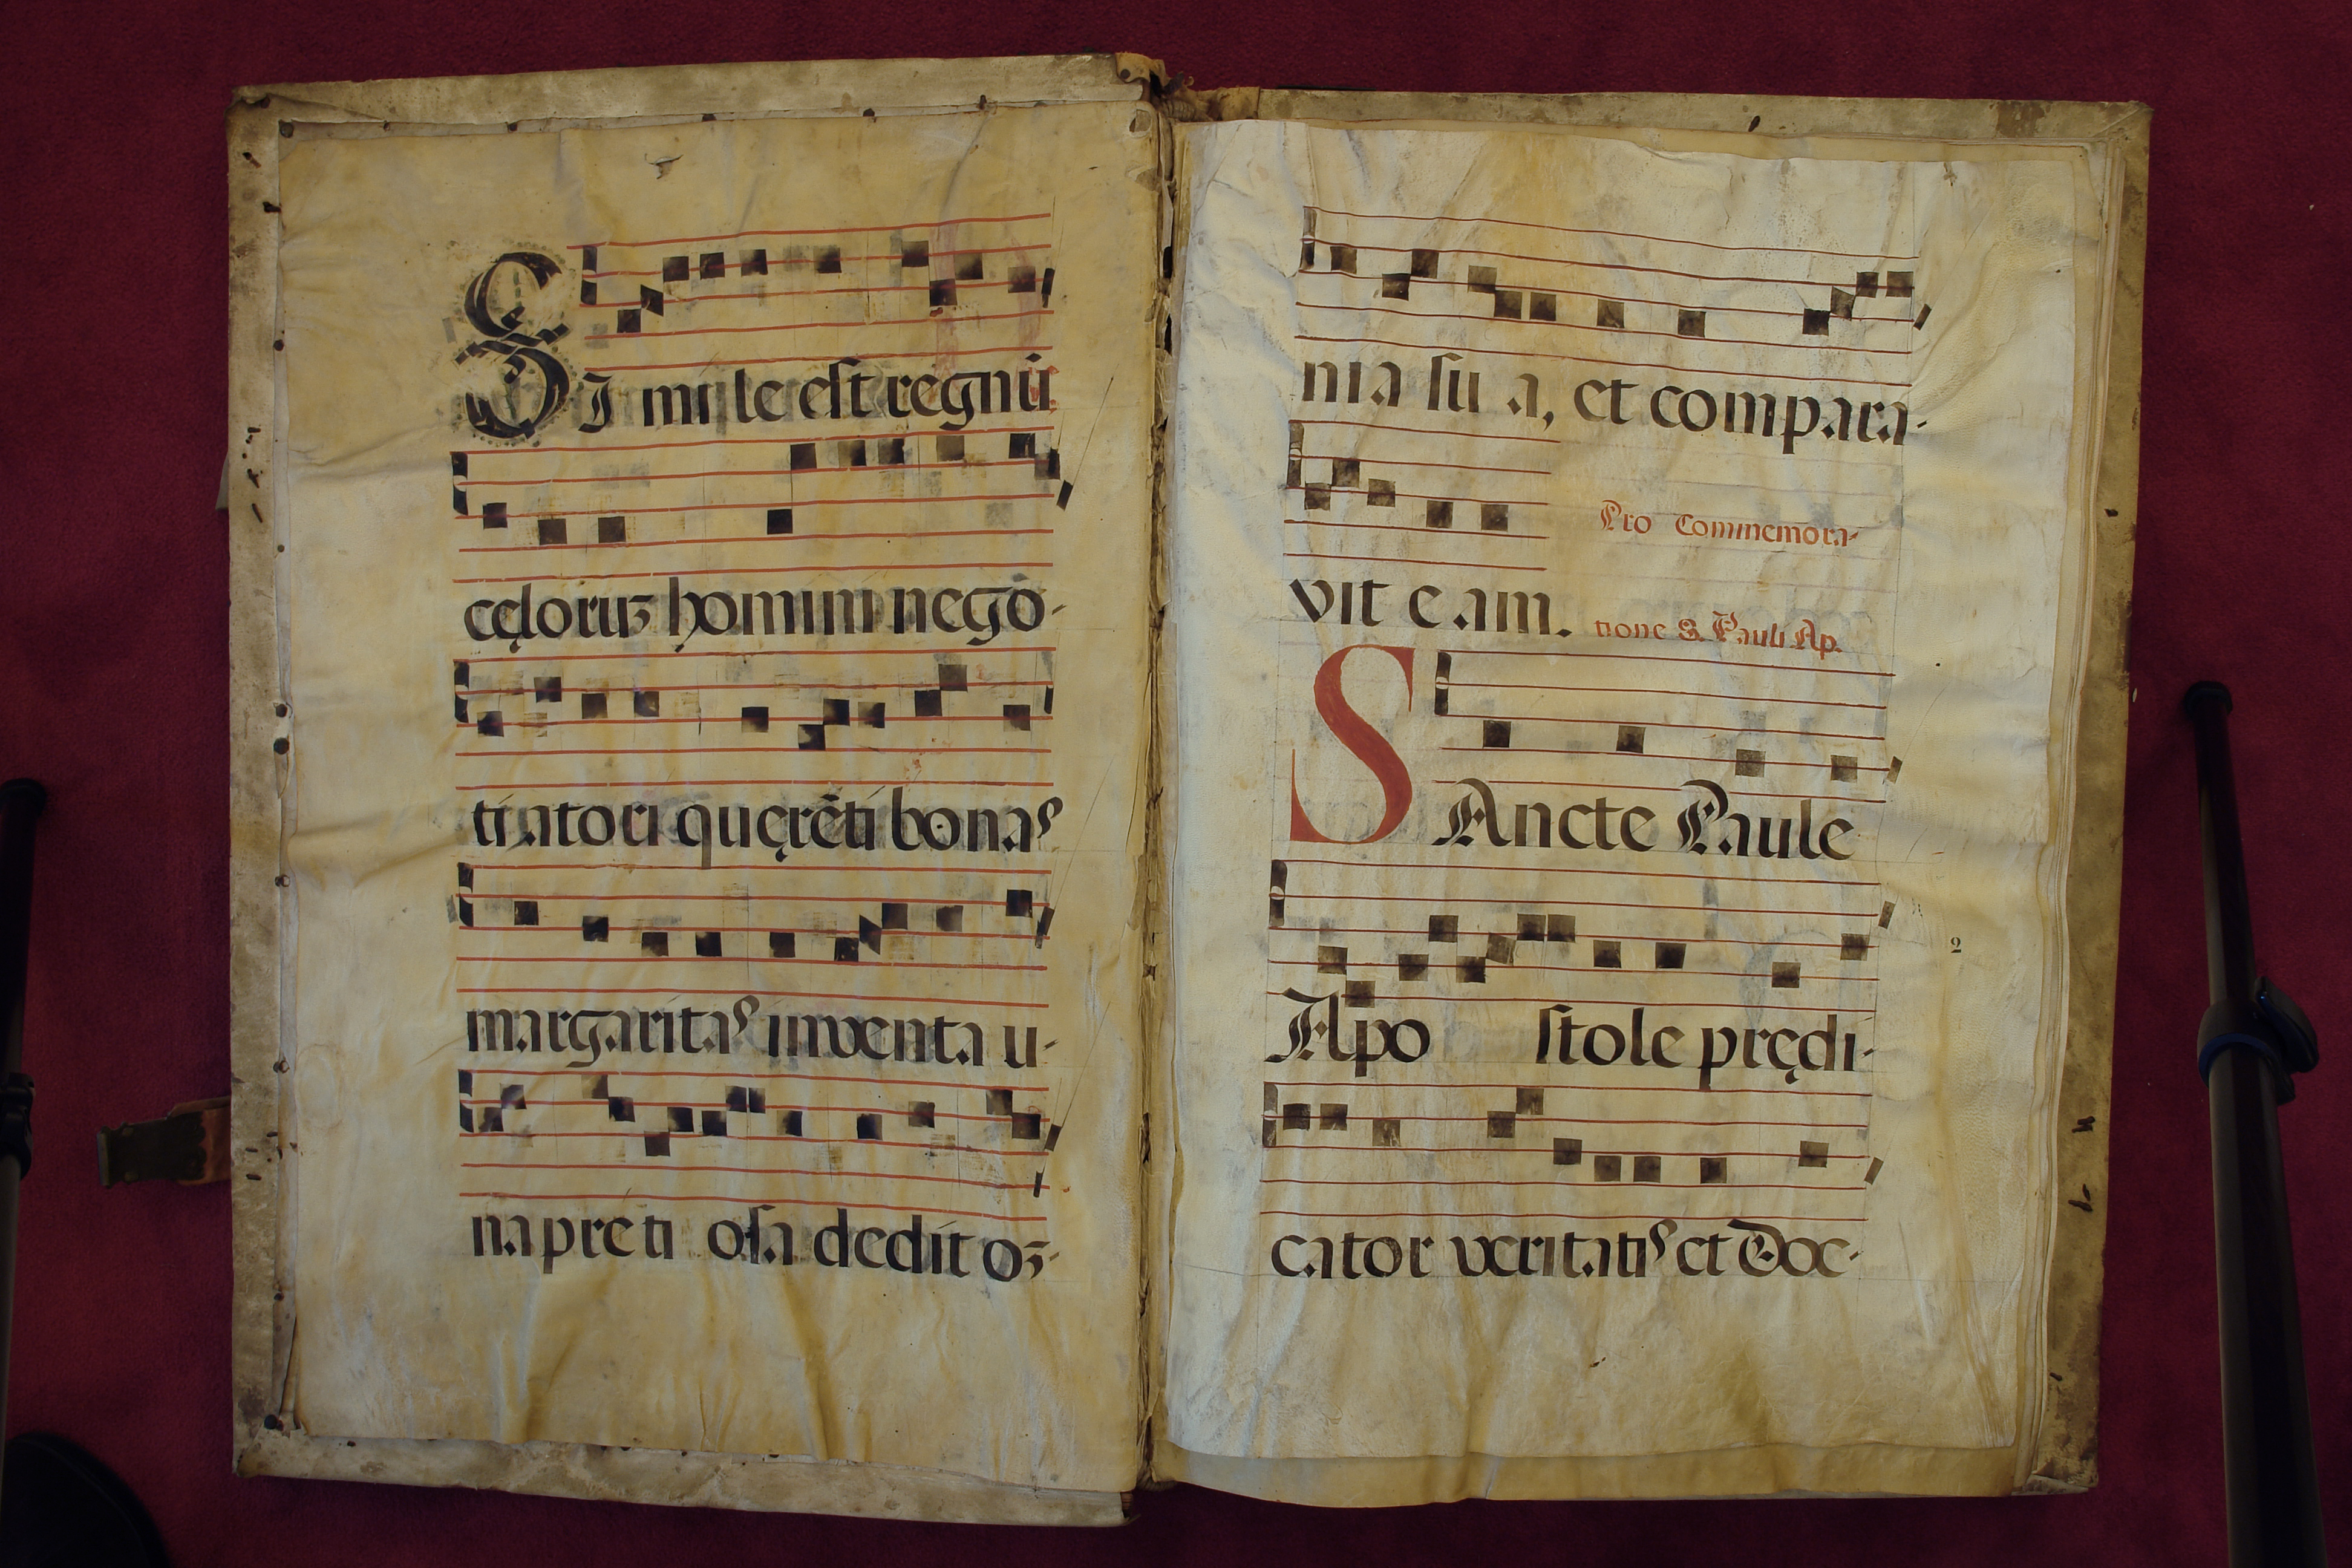 SI mi le est regnū
cęloruʒ homini nego-
tiatori quęrēti bonas
margaritas inventa u-
na pre ti osa dedit oʒ-
nia su a, et compara-
vit e am.
Pro Commemora-
tione S. Pauli Ap.
SAncte Paule
Apo stole prędi-
2
cator veritatis et Doc-